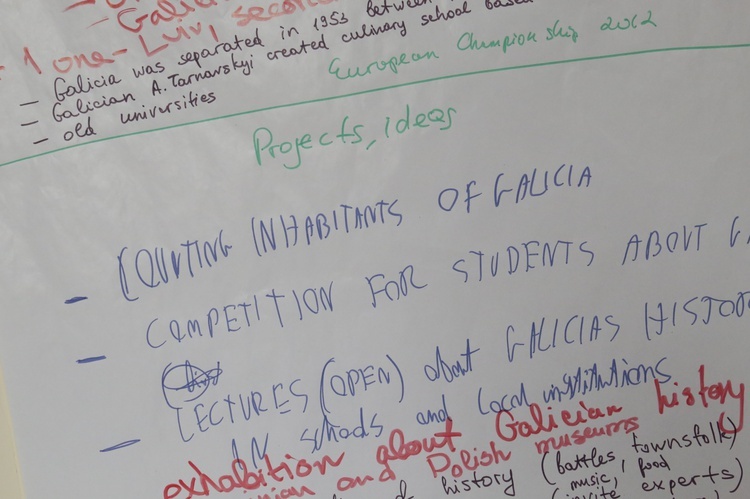 Galicia
- 1 one - Lviv, second
- Galicia was separated in 1953 between
- Galician A. Tarnavskyi created culinary school based
- old universities
European Championship 2012
Projects, ideas
- COUNTING INHABITANTS OF GALICIA
- COMPETITION FOR STUDENTS ABOUT GA
- LECTURES (OPEN) about GALICIAS HISTOR
IN schools and local institutions
exhabition about Galician history
and Polish museums
history (battles, townsfolk)
music, food
(invite experts)